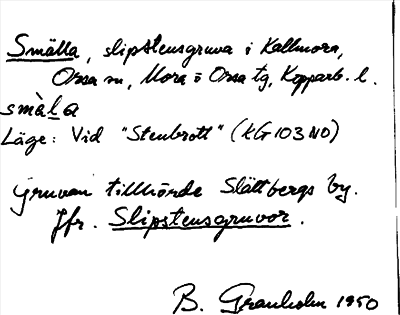 Smälla, slipstensgruva i Kallmora,
Orsa sn, Mora o Orsa tg, Kopparb. l.
smàla
Läge: Vid "Stenbrott" (kG 103 NO)
Gruvan tillhörde Slättbergs by.
Jfr. Slipstensgruvor.
B. Granholm 1950